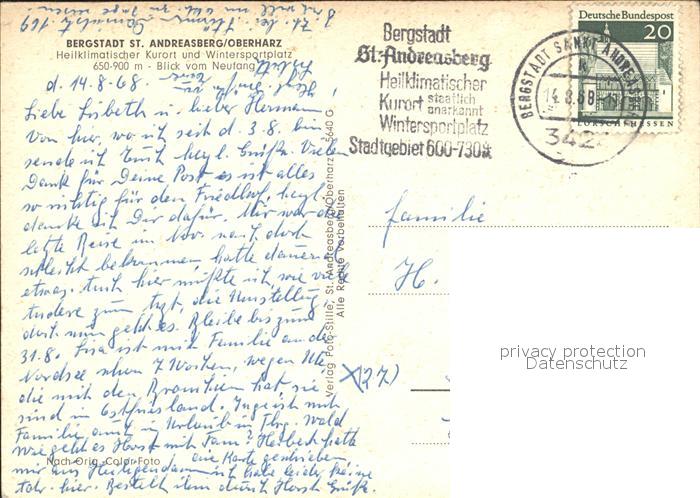 BERGSTADT ST. ANDREASBERG/OBERHARZ
Heilklimatischer Kurort und Wintersportplatz
650-900 m - Blick vom Neufang
d. 14.8.68.
Liebe Lisbeth u. lieber Hermann
Von hier, wo ich seit d. 3.8. bin
sende ich Euch herzl. Grüße. Vielen
Dank für Deine Post es ist alles
so richtig für den Friedhof, herzl.
danke ich Dir dafür. Mir war die
letzte Reise im Nov. nach dort
schlecht bekommen, hatte dauernd
etwas. Auch hier mußte ich, wie viele
andere zum Arzt, die Umstellung,
doch nun geht es. Bleibe bis zum
31.8. Lisa ist mit Familie an der
Nordsee schon 7 Wochen, wegen Ute
die mit den Bronchien hat sie
sind in Ostfriesland. Inge ist mit
Familie auch in Urlaub in Thg. Wald
wie geht es Horst mit Fam?
mir aus Heiligendamm eine Karte geschrieben,
ich habe leider keine
Adr. hier. Bestellt ihm doch Horst Grüße.
Nach Orig.-Color-Foto
Verlag Foto-Stille, St. Andreasberg/Oberharz 5640 G
Alle Rechte vorbehalten
Bergstadt
St. Andreasberg
Heilklimatischer
Kurort staatlich anerkannt
Wintersportplatz
Stadtgebiet 600-730 m
BERGSTADT SANKT ANDREASBERG
14.8.68
342
Deutsche Bundespost
20
LORSCH/HESSEN
Familie
H.
X(27)
privacy protection
Datenschutz